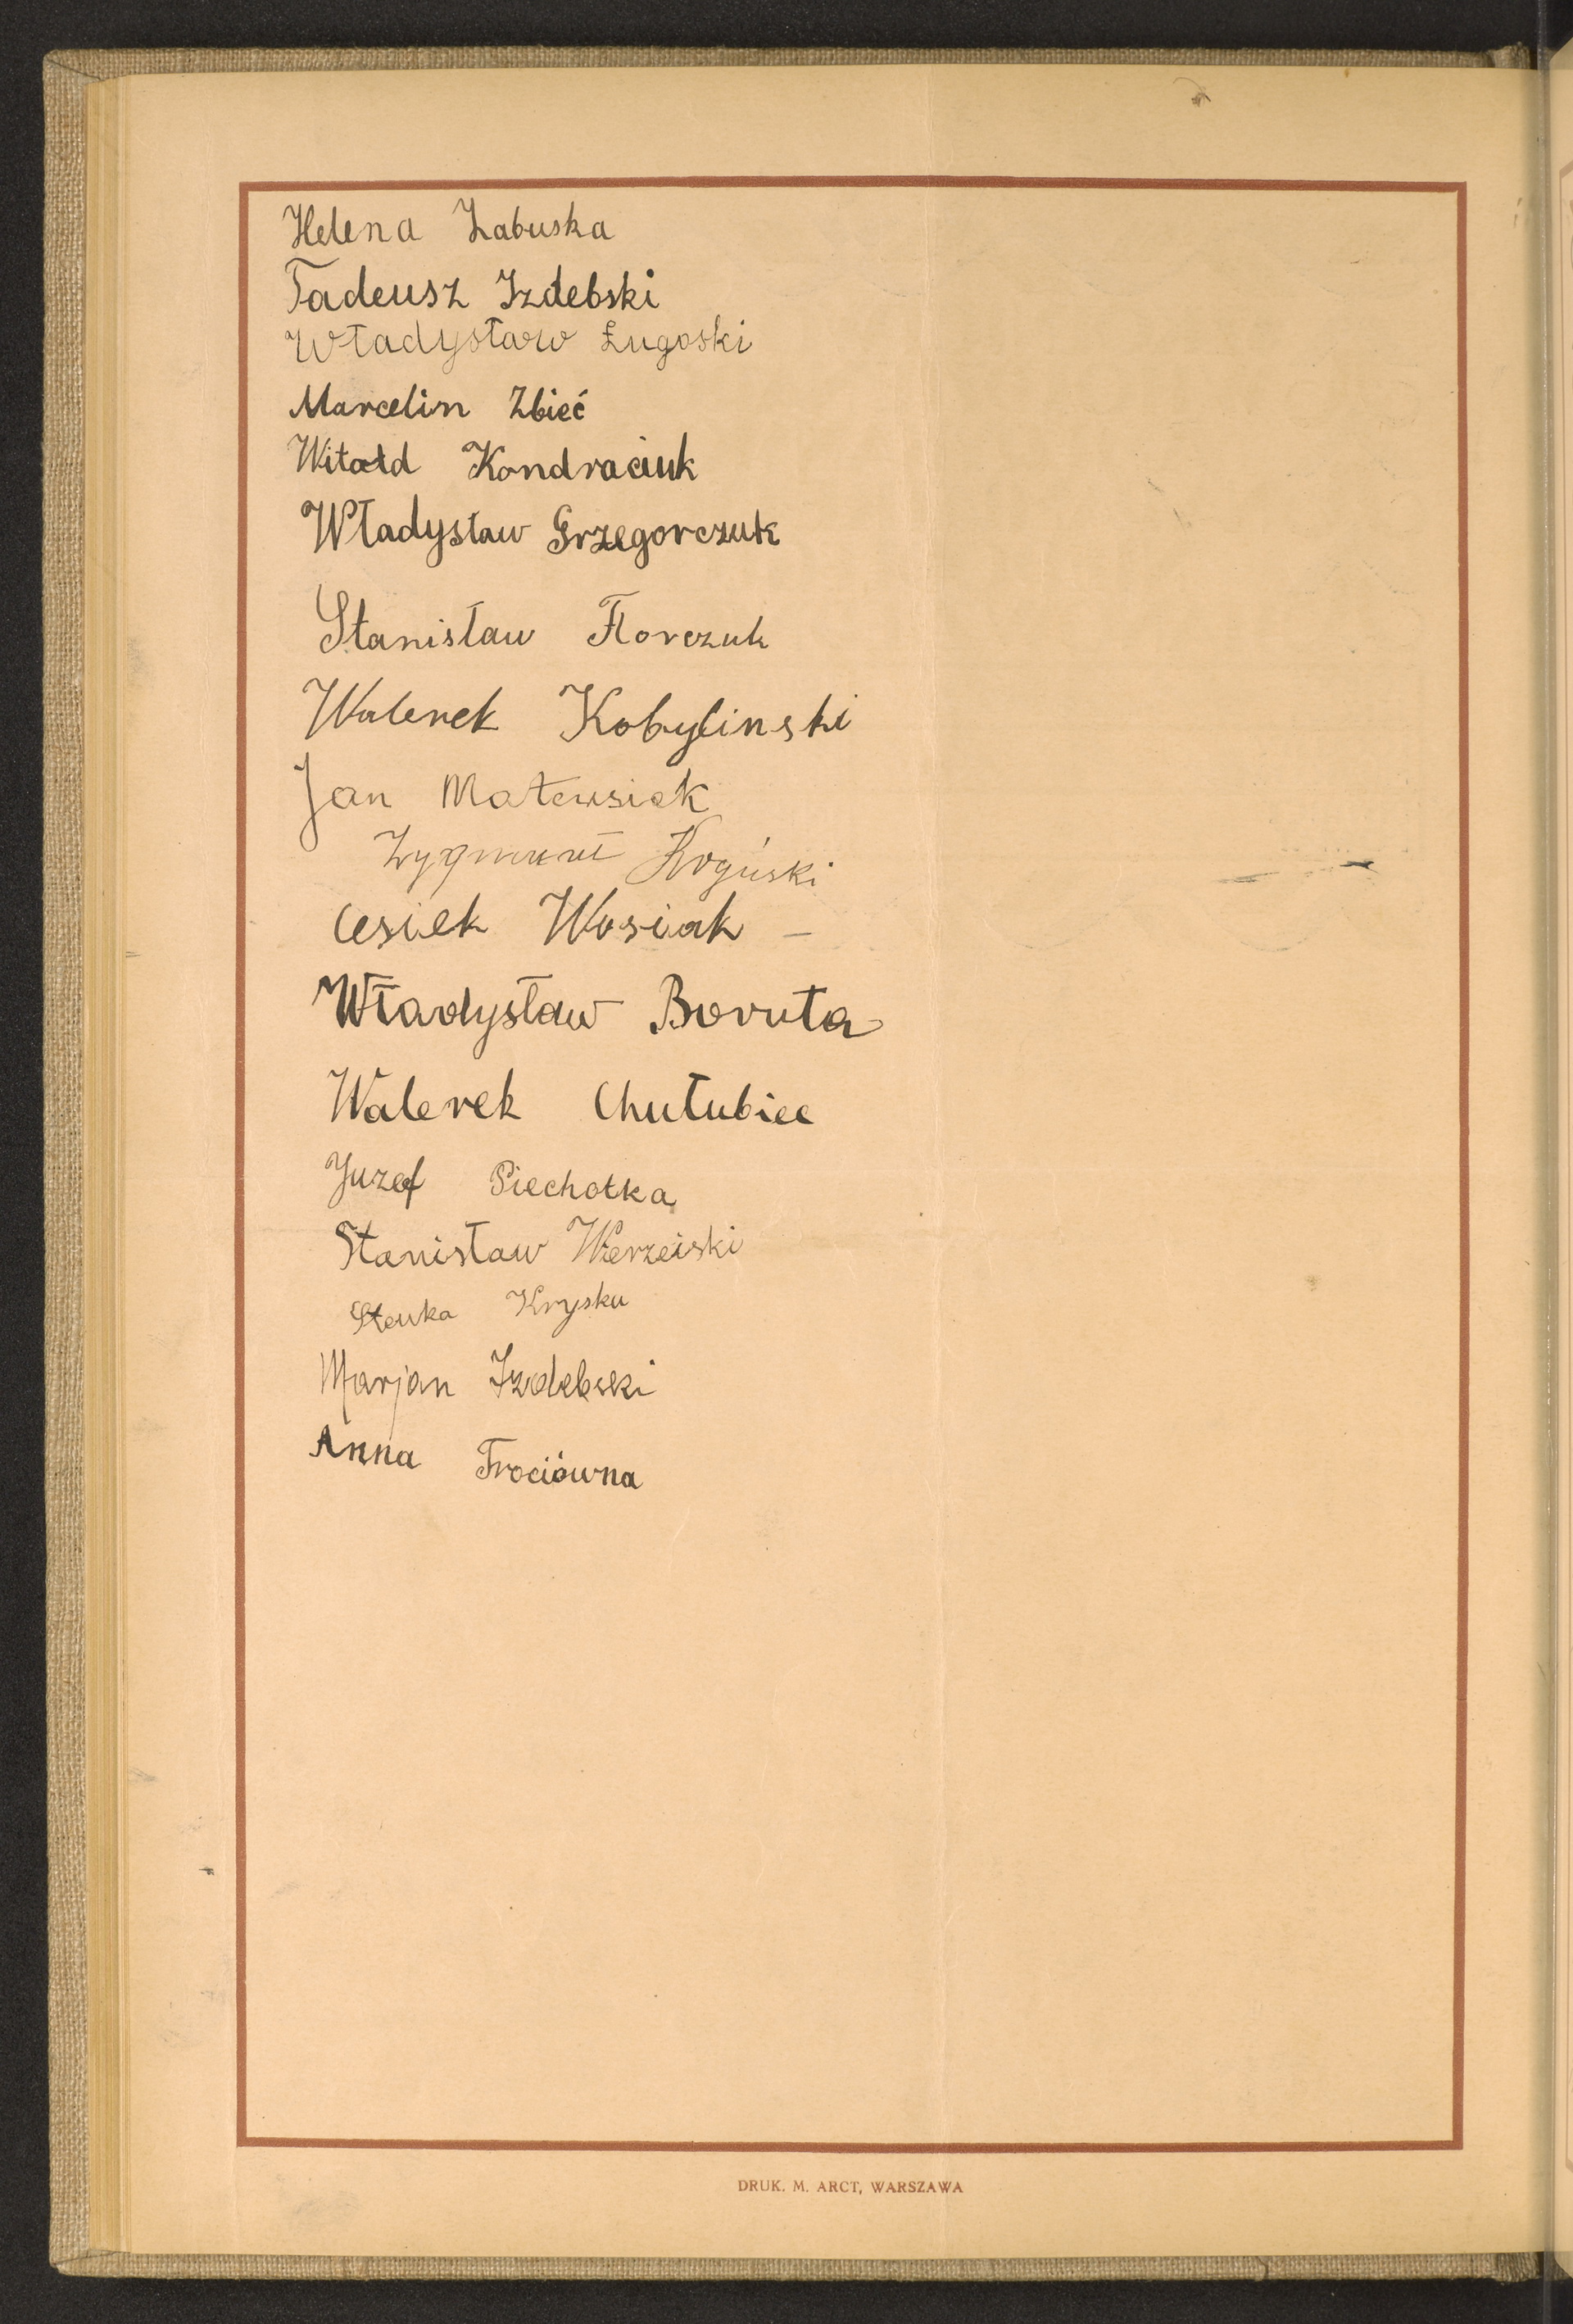 Helena Zabuska
Tadeusz Izdebski
Władysław Ługoski
Marcelin Zbieć
Witołd Kondraciuk
Władysław Grzegorczuk
Stanisław Florczuk
Walerek Kobylinski
Jan Matewsiak
Zygmunt Rogúski
Cesiek Wosiak –
Władysław Boruta
Walerek Chułubiec
Juzef Piechotka
Stanisław Wierzeiski
Krysku
Marjan Izdebski
Anna Trociówna
DRUK. M. ARCT, WARSZAWA